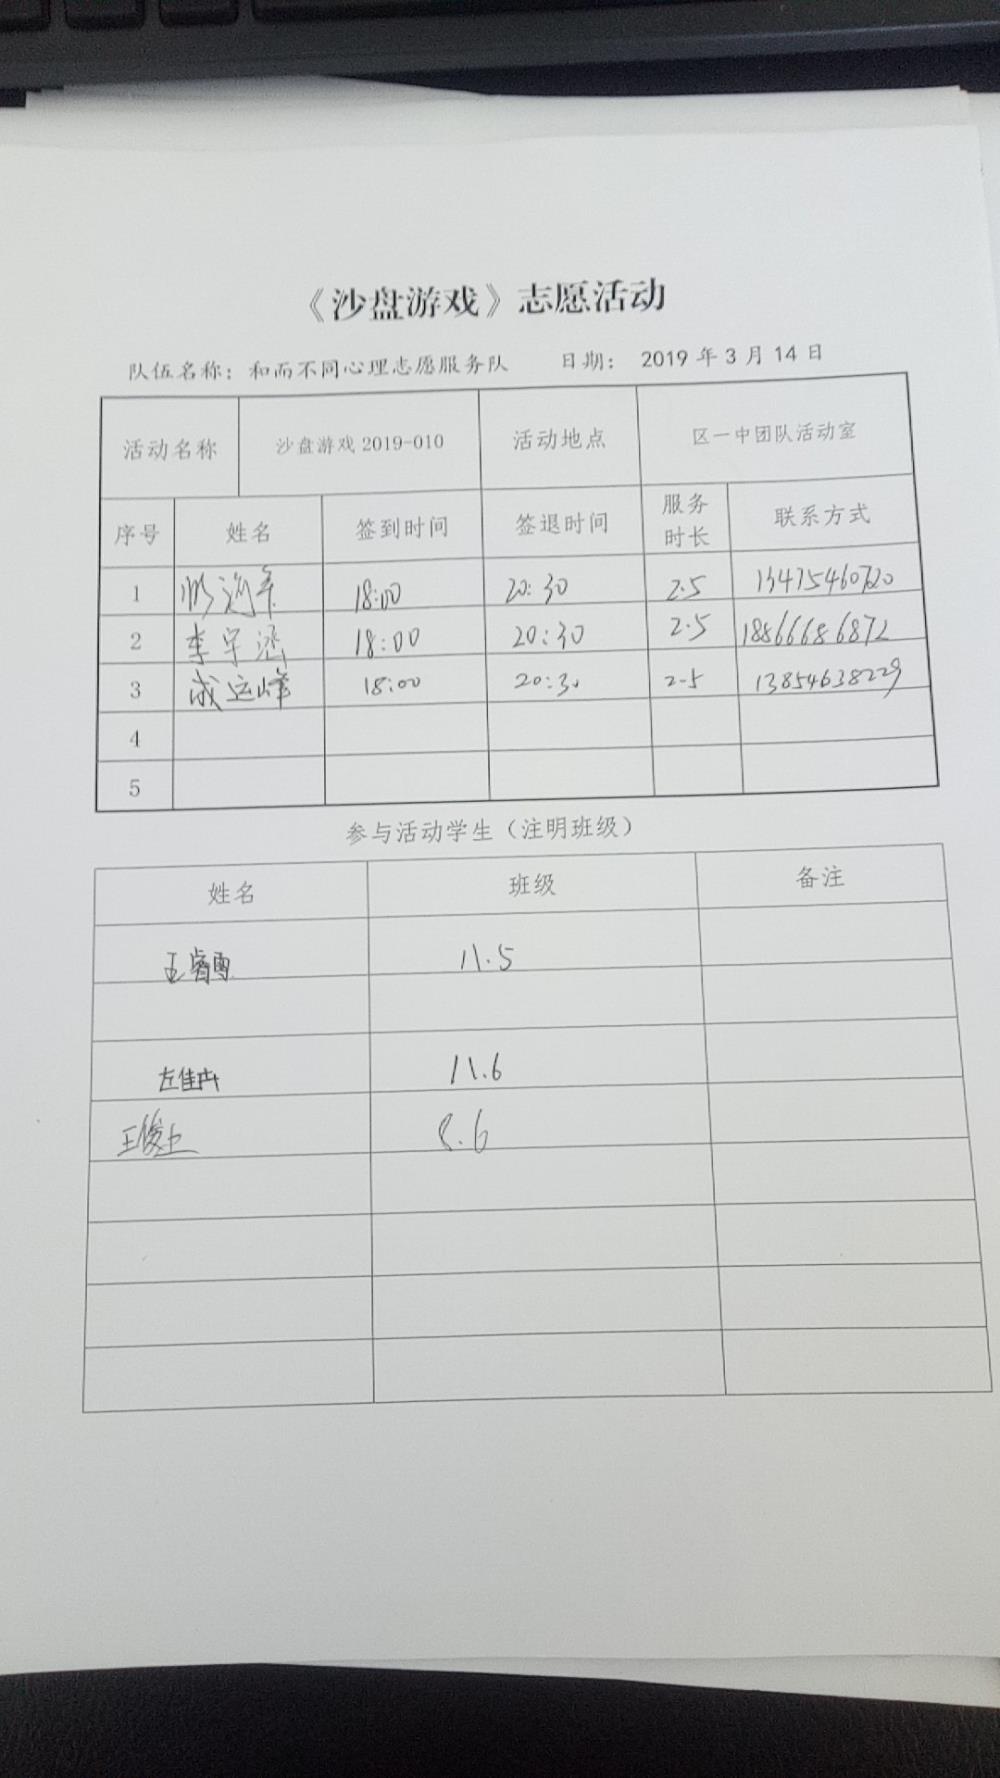 《沙盘游戏》志愿活动
队伍名称：和而不同心理志愿服务队 日期： 2019 年 3 月 14 日
活动名称 沙盘游戏 2019-010 活动地点 区一中团队活动室
序号 姓名 签到时间 签退时间 服务时长 联系方式
1 18:00 20:30 2.5 13475460720
2 李宇涵 18:00 20:30 2.5 18866686872
3 成运峰 18:00 20:30 2.5 13854638229
4
5
参与活动学生（注明班级）
姓名 班级 备注
王睿雪 11.5
左佳卉 11.6
王俊 8.6